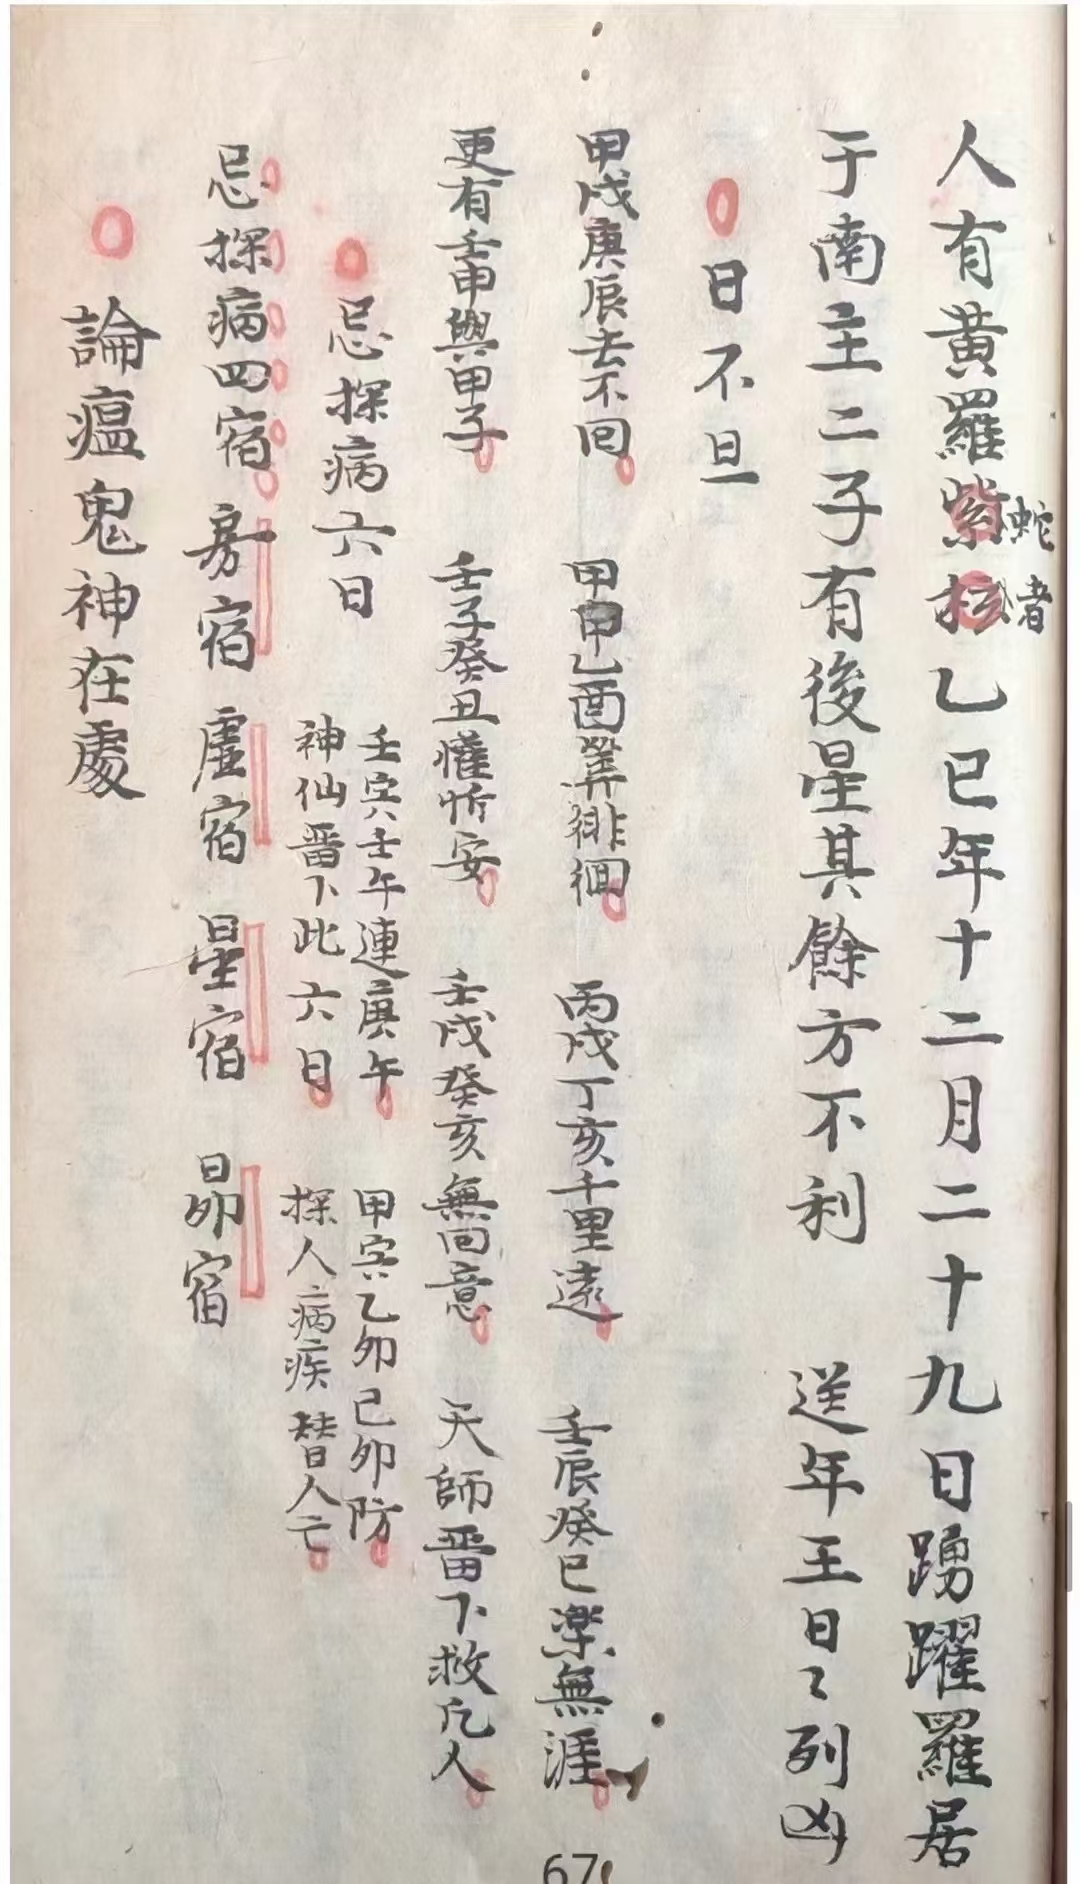 人有黃羅紫拉乙巳年十二月二十九日踴躍羅居
蛇者
于南主二子有後星其餘方不利 送年王日〻列凶
日不旦
甲戌庚辰去不回 甲申乙酉算徘徊 丙戌丁亥千里遠 壬辰癸巳楽無涯
更有壬申與甲子 壬子癸丑懽忻安 壬戌癸亥無回意 天師畨下救凡人
忌探病六日
壬寅壬午連庚午 甲寅乙卯己卯防
神仙畨下此六日 探人病疾替人亡
忌探病四宿 房宿 虛宿 星宿 昴宿
論瘟鬼神在處
67